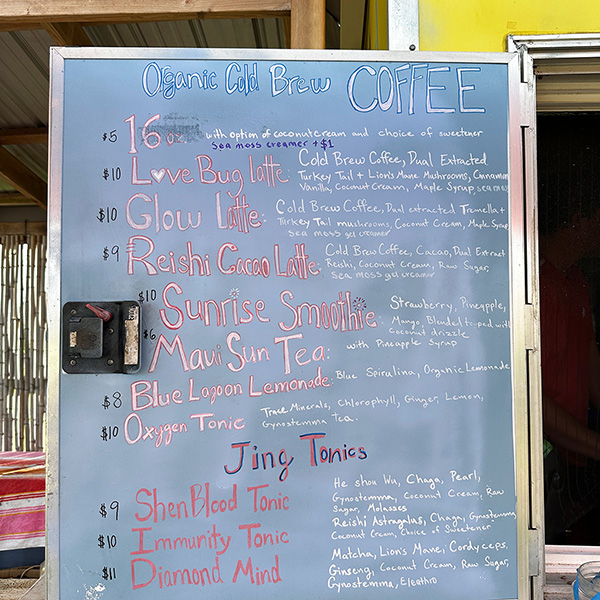 Organic Cold Brew COFFEE
$5 16 oz. with option of coconut cream and choice of sweetener
Sea moss creamer +$1
$10 Love Bug latte: Cold Brew Coffee, Dual Extracted
Turkey Tail + Lion's Mane Mushrooms, Cinnamon
Vanilla, Coconut Cream, Maple Syrup, sea moss
$10 Glow Latte: Cold Brew Coffee, Dual extracted Tremella +
Turkey Tail mushrooms, Coconut Cream, Maple Syrup
sea moss gel creamer
$9 Reishi Cacao Latte: Cold Brew Coffee, Cacao, Dual Extract
Reishi, Coconut Cream, Raw Sugar,
sea moss gel creamer
$10 Sunrise Smoothie Strawberry, Pineapple,
Mango, Blended topped with
coconut drizzle
$6 Maui Sun Tea: with Pineapple Syrup
$8 Blue Lagoon Lemonade: Blue Spirulina, Organic Lemonade
$10 Oxygen Tonic Trace Minerals, Chlorophyll, Ginger, Lemon,
Gynostemma tea.
Jing Tonics
$9 Shen Blood Tonic He shou Wu, Chaga, Pearl,
Gynostemma, Coconut Cream, Raw
Sugar, Molasses
$10 Immunity Tonic Reishi Astragalus, Chaga, Gynostemma
Coconut Cream, Choice of Sweetener
$11 Diamond Mind Matcha, Lion's Mane, Cordyceps,
Ginseng, Coconut Cream, Raw Sugar,
Gynostemma, Eleuthro